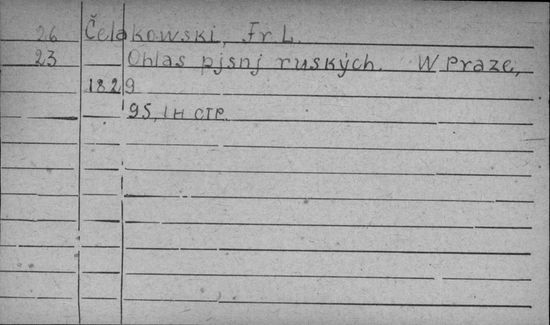 26 Čelakowski, Fr. L.
23 Ohlas pjsnj ruských. W Praze,
1829
95, 1н стр.